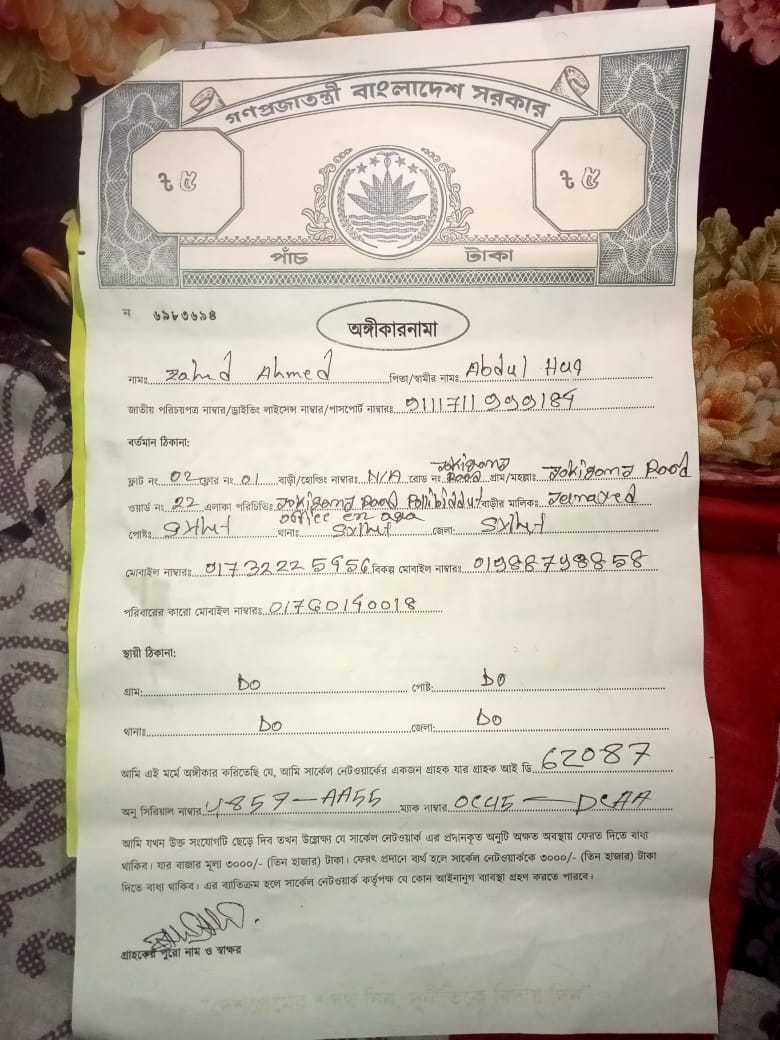 গণপ্রজাতন্ত্রী বাংলাদেশ সরকার
৳ ৫ ৳ ৫
পাঁচ টাকা
ন ৬৯৮৩৬৯৪
অঙ্গীকারনামা
নামঃ Zahid Ahmed পিতা/স্বামীর নামঃ Abdul Haq
জাতীয় পরিচয়পত্র নাম্বার/ড্রাইভিং লাইসেন্স নাম্বার/পাসপোর্ট নাম্বারঃ
বর্তমান ঠিকানা:
ফ্লাট নং 02 ফ্লোর নং 01 বাড়ী/হোল্ডিং নাম্বারঃ N/A রোড নং Road গ্রাম/মহল্লাঃ Road
ওয়ার্ড নং 22 এলাকা পরিচিতিঃ Road বাড়ীর মালিকঃ
পোষ্টঃ Sylhet থানাঃ Sylhet জেলা: Sylhet
মোবাইল নাম্বারঃ 01732225956 বিকল্প মোবাইল নাম্বারঃ
পরিবারের কারো মোবাইল নাম্বারঃ
স্থায়ী ঠিকানা:
গ্রাম: Do পোষ্ট: Do
থানাঃ Do জেলা: Do
আমি এই মর্মে অঙ্গীকার করিতেছি যে, আমি সার্কেল নেটওয়ার্কের একজন গ্রাহক যার গ্রাহক আই ডি 62087
অনু সিরিয়াল নাম্বার 4857-AA55 ম্যাক নাম্বার
আমি যখন উক্ত সংযোগটি ছেড়ে দিব তখন উল্লেক্ষ্য যে সার্কেল নেটওয়ার্ক এর প্রদানকৃত অনুটি অক্ষত অবস্থায় ফেরত দিতে বাধ্য
থাকিব। যার বাজার মূল্য ৩০০০/- (তিন হাজার) টাকা। ফেরৎ প্রদানে ব্যর্থ হলে সার্কেল নেটওয়ার্ককে ৩০০০/- (তিন হাজার) টাকা
দিতে বাধ্য থাকিব। এর ব্যতিক্রম হলে সার্কেল নেটওয়ার্ক কর্তৃপক্ষ যে কোন আইনানুগ ব্যবস্থা গ্রহণ করতে পারবে।
গ্রাহকের পুরো নাম ও স্বাক্ষর
"দেশপ্রেমের শপথ নিন, দুর্নীতিকে বিদায় দিন"